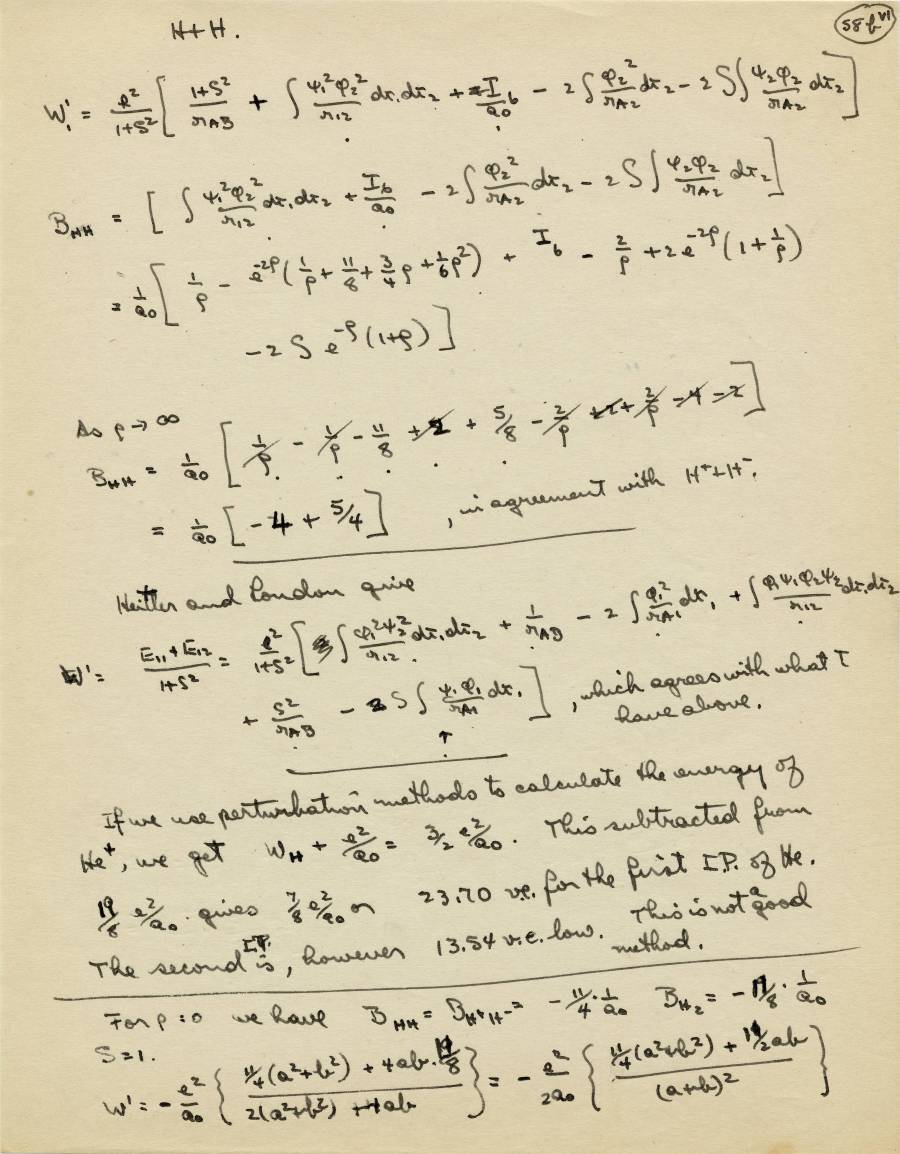 58f VI
H+H.
W₁' = e²/(1+S²) [ (1+S²)/r_AB + ∫ ψ₁²φ₂²/r₁₂ dτ₁dτ₂ + I₆/a₀ − 2∫ φ₂²/r_A2 dτ₂ − 2S∫ ψ₂φ₂/r_A2 dτ₂ ]
B_HH = [ ∫ ψ₁²φ₂²/r₁₂ dτ₁dτ₂ + I₆/a₀ − 2∫ φ₂²/r_A2 dτ₂ − 2S∫ ψ₂φ₂/r_A2 dτ₂ ]
= 1/a₀ [ 1/ρ − e^(−2ρ)(1/ρ + 11/8 + 3/4 ρ + 1/6 ρ²) + I₆ − 2/ρ + 2e^(−2ρ)(1 + 1/ρ)
− 2S e^(−ρ)(1+ρ) ]
As ρ → ∞
B_HH = 1/a₀ [ 1/ρ − 1/ρ − 11/8 + 5/8 − 2/ρ + 2/ρ − 2 ]
= 1/a₀ [ −4 + 5/4 ] , in agreement with H⁺+H⁻.
Heitler and London give
W' = (E₁₁+E₁₂)/(1+S²) = e²/(1+S²) [ ∫ φ₁²ψ₂²/r₁₂ dτ₁dτ₂ + 1/r_AB − 2∫ φ₁²/r_A1 dτ₁ + ∫ φ₁ψ₁φ₂ψ₂/r₁₂ dτ₁dτ₂
+ S²/r_AB − 2S∫ ψ₁φ₁/r_A1 dτ₁ ] , which agrees with what I
↑ have above.
If we use perturbation methods to calculate the energy of
He⁺, we get W_H + e²/a₀ = 3/2 e²/a₀. This subtracted from
19/8 e²/a₀ gives 7/8 e²/a₀ or 23.70 v.e. for the first I.P. of He.
The second I.P. is, however 13.54 v.e. low. This is not a good
method.
For ρ = 0 we have B_HH = B_H⁺H⁻ = −11/4 · 1/a₀ B_H₂ = −19/8 · 1/a₀
S = 1.
W' = −e²/a₀ { (11/4(a²+b²) + 4ab·19/8) / (2(a²+b²) + 4ab) } = − e²/2a₀ { (11/4(a²+b²) + 19/2 ab) / (a+b)² }